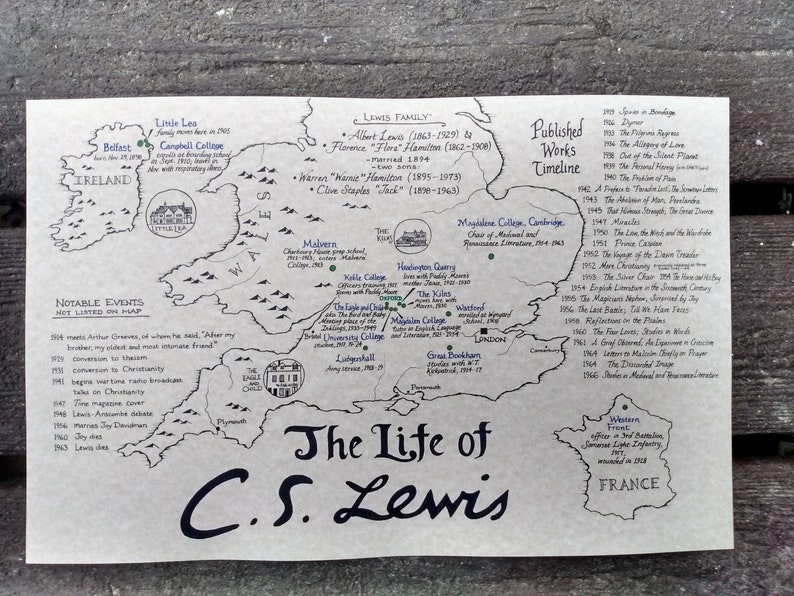 Little Lea
family moves here in 1905
Belfast
born Nov. 29, 1898
Campbell College
enrolls at boarding school
in Sept. 1910; leaves in
Nov. with respiratory illness.
IRELAND
LITTLE LEA
WALES
LEWIS FAMILY
• Albert Lewis (1863-1929) &
• Florence "Flora" Hamilton (1862-1908)
-married 1894
-two sons:
• Warren "Warnie" Hamilton (1895-1973)
• Clive Staples "Jack" (1898-1963)
Published
Works
Timeline
1919 Spirits in Bondage
1926 Dymer
1933 The Pilgrims Regress
1936 The Allegory of Love
1938 Out of the Silent Planet
1939 The Personal Heresy
1940 The Problem of Pain
1942 A Preface to "Paradise Lost", The Screwtape Letters
1943 The Abolition of Man, Perelandra
1945 That Hideous Strength, The Great Divorce
1947 Miracles
1950 The Lion, the Witch, and the Wardrobe
1951 Prince Caspian
1952 The Voyage of the Dawn Treader
1952 Mere Christianity
1953 The Silver Chair 1954 The Horse and His Boy
1954 English Literature in the Sixteenth Century
1955 The Magicians Nephew, Surprised by Joy
1956 The Last Battle; Till We Have Faces
1958 Reflections on the Psalms
1960 The Four Loves; Studies in Words
1961 A Grief Observed; An Experiment in Criticism
1964 Letters to Malcolm Chiefly on Prayer
1964 The Discarded Image
1966 Studies in Medieval and Renaissance Literature
THE
KILNS
Magdalene College, Cambridge
Chair of Medieval and
Renaissance Literature, 1954-1963
Malvern
Cherbourg House prep school,
1911-1913; enters Malvern
College, 1913
Keble College
Officers training 1917
Rooms with Paddy Moore
Headington Quarry
lives with Paddy Moore's
mother Janie, 1921-1930
The Kilns
moves here with
Moores, 1930
OXFORD
The Eagle and Child
aka The Bird and Baby
Meeting place of the
Inklings, 1933-1949
Magdalen College
tutor in English Language
and Literature, 1925-1954
Watford
enrolled at Wynyard
School, 1908
Bristol
University College
student, 1917, 19-24
LONDON
Canterbury
Ludgershall
Army service, 1918-19
Great Bookham
studies with W.T.
Kirkpatrick, 1914-17
THE
EAGLE
AND
CHILD
Portsmouth
Plymouth
NOTABLE EVENTS
NOT LISTED ON MAP
1914 meets Arthur Greeves, of whom he said, "After my
brother, my oldest and most intimate friend."
1929 conversion to theism
1931 conversion to Christianity
1941 begins wartime radio broadcast
talks on Christianity
1947 Time magazine cover
1948 Lewis-Anscombe debate
1956 marries Joy Davidman
1960 Joy dies
1963 Lewis dies
Western
Front
officer in 3rd Battalion,
Somerset Light Infantry,
1917,
wounded in 1918
FRANCE
The Life of
C. S. Lewis